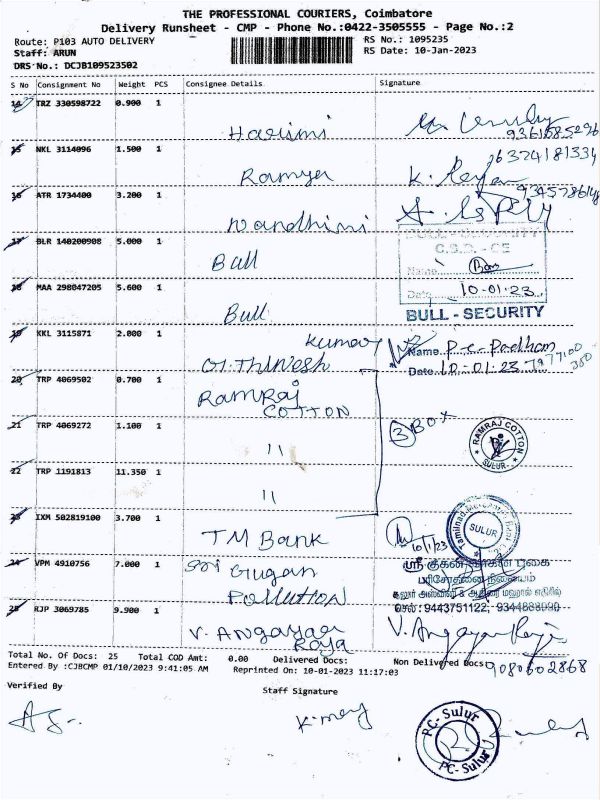 THE PROFESSIONAL COURIERS, Coimbatore
Delivery Runsheet - CMP - Phone No.:0422-3505555 - Page No.:2
Route: P103 AUTO DELIVERY
RS No.: 1095235
Staff: ARUN
RS Date: 10-Jan-2023
DRS No.: DCJB109523502
S No Consignment No Weight PCS Consignee Details Signature
14 TRZ 330598722 0.900 1
Harimi
9361585296
15 NKL 3114096 1.500 1
6374181334
Ramya K.
16 ATR 1734400 3.200 1
Nandhini A.
17 BLR 140200908 5.000 1
BULL - SECURITY
Bull
C.S.D. - CE
Name
Date 10-01-23
18 MAA 298047205 5.600 1
Bull
BULL - SECURITY
19 KKL 3115871 2.000 1
Kumar
G. Thinesh
Name P-C-Padham
Date 10-01-23
20 TRP 4069502 0.700 1
RAMRAJ
COTTON
3 BOX
21 TRP 4069272 1.100 1
11
RAMRAJ COTTON
SULUR
22 TRP 1191813 11.350 1
11
23 IXM 502819100 3.700 1
TM Bank
10/1/23
SULUR
24 VPM 4910756 7.000 1
Sri Gugan
Pollution
ஸ்ரீ குகன் வாகன புகை
பரிசோதனை நிலையம்
செல்: 9443751122, 9344888090
25 RJP 3069785 9.900 1
V. Angayar
Raja
V. Angayar Raja
Total No. Of Docs: 25 Total COD Amt: 0.00 Delivered Docs: Non Delivered Docs:
9080602868
Entered By :CJBCMP 01/10/2023 9:41:05 AM Reprinted On: 10-01-2023 11:17:03
Verified By
Staff Signature
PC- Sulur
PC- Sulur